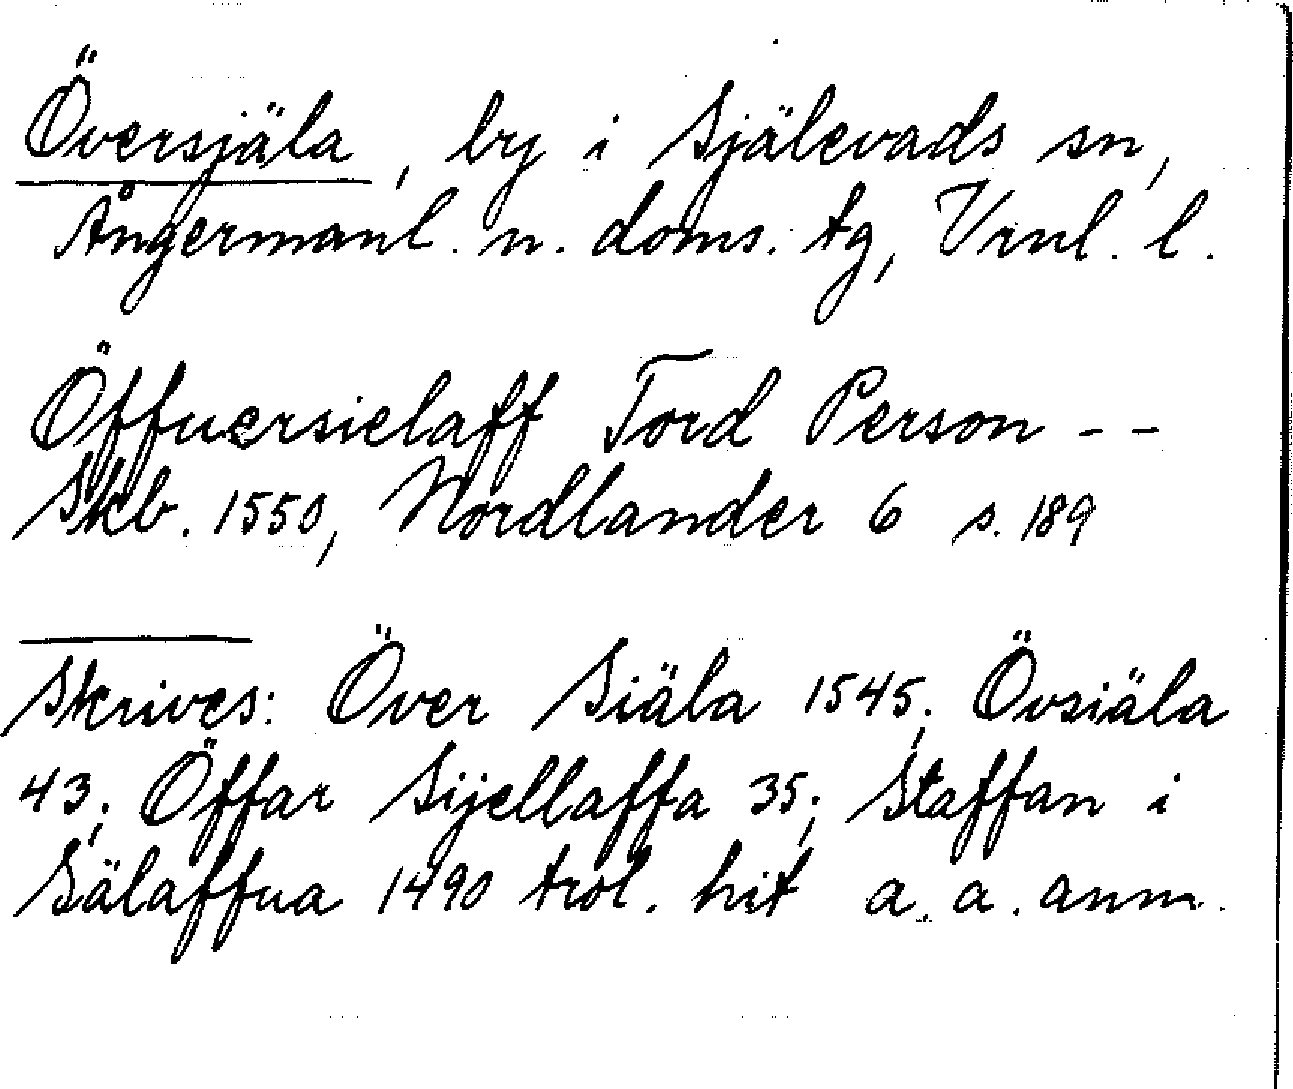 Översjäla, by i Själevads sn,
Ångermanl. n. doms. tg, Vrnl. l.
Öffuersielaff Tord Person - -
Skb. 1550, Nordlander 6 s. 189
Skrives: Över Siäla 1545; Övsiäla
43; Öffar Sijellaffa 35; Staffan i
Sälaffua 1490 trol. hit a. a. anm.